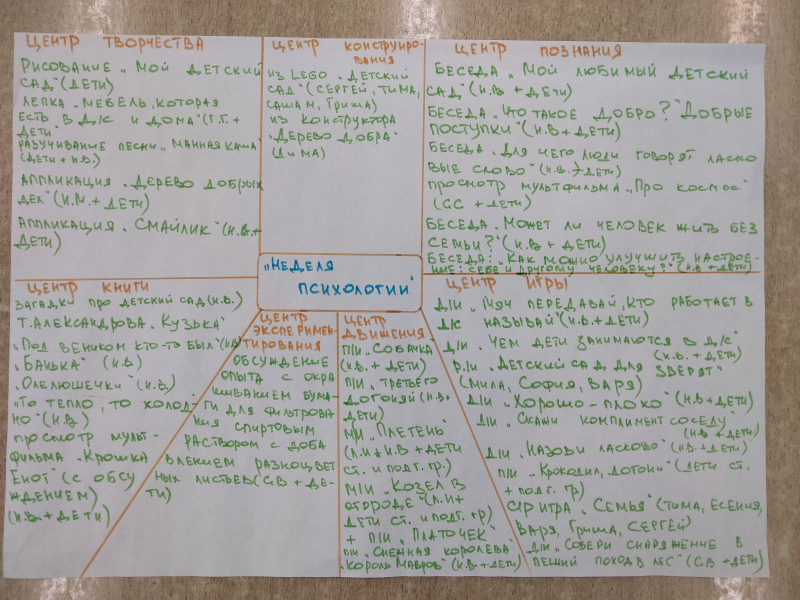 ЦЕНТР ТВОРЧЕСТВА
РИСОВАНИЕ „МОЙ ДЕТСКИЙ
САД" (ДЕТИ)
ЛЕПКА „МЕБЕЛЬ, КОТОРАЯ
ЕСТЬ В Д/С И ДОМА" (Г.Г. +
ДЕТИ
РАЗУЧИВАНИЕ ПЕСНИ „МАННАЯ КАША"
(ДЕТИ + Н.В.)
АППЛИКАЦИЯ „ДЕРЕВО ДОБРЫХ
ДЕХ" (И.М. + ДЕТИ)
АППЛИКАЦИЯ „СМАЙЛИК" (Н.В. +
ДЕТИ)
ЦЕНТР КОНСТРУИРО-
ВАНИЯ
ИЗ LEGO „ДЕТСКИЙ
САД" (СЕРГЕЙ, ТИМА,
САША М, ГРИША)
ИЗ КОНСТРУКТОРА
„ДЕРЕВО ДОБРА"
(ДИМА)
ЦЕНТР ПОЗНАНИЯ
БЕСЕДА „МОЙ ЛЮБИМЫЙ ДЕТСКИЙ
САД" (Н.В + ДЕТИ)
БЕСЕДА „ЧТО ТАКОЕ ДОБРО? "ДОБРЫЕ
ПОСТУПКИ" (Н.В + ДЕТИ)
БЕСЕДА „ДЛЯ ЧЕГО ЛЮДИ ГОВОРЯТ ЛАСКО
ВЫЕ СЛОВО" (Н.В. + ДЕТИ)
ПРОСМОТР МУЛЬТФИЛЬМА „ПРО КОСМОС"
(СС + ДЕТИ)
БЕСЕДА „МОЖЕТ ЛИ ЧЕЛОВЕК ЖИТЬ БЕЗ
СЕМЬИ?" (Н.В + ДЕТИ)
БЕСЕДА: „КАК МОЖНО УЛУЧШИТЬ НАСТРОЕ-
НИЕ: СЕБЕ И ДРУГОМУ ЧЕЛОВЕКУ?" (Н.В + ДЕТИ)
„НЕДЕЛЯ
ПСИХОЛОГИИ"
ЦЕНТР КНИГИ
ЗАГАДКИ ПРО ДЕТСКИЙ САД (Н.В.)
Т. АЛЕКСАНДРОВА „КУЗЬКА"
„ПОД ВЕНИКОМ КТО-ТЬ БЫЛ" (Н.В)
„БАНЬКА" (Н.В)
„ОЛЕЛЮШЕЧКИ" (Н.В)
„ТО ТЕПЛО, ТО ХОЛОД-
НО" (Н.В)
ПРОСМОТР МУЛЬТ-
ФИЛЬМА „КРОШКА
ЕНОТ" (С ОБСУ
ЖДЕНИЕМ)
(Н.В. + ДЕТИ)
ЦЕНТР
ЭКСПЕРИМЕН-
ТИРОВАНИЯ
ОБСУЖДЕНИЕ
ОПЫТА С ОКРА
ШИВАНИЕМ БУМА-
ГИ ДЛЯ ФИЛЬТРОВА
НИЯ СПИРТОВЫМ
РАСТВОРОМ С ДОБА
ВЛЕНИЕМ РАЗНОЦВЕТ
НЫХ ЛИСТЬЕВ (С.В + ДЕ-
ТИ)
ЦЕНТР
ДВИЖЕНИЯ
П/И „СОБАЧКА
(Н.В. + ДЕТИ)
П/И „ТРЕТЬЕГО
ДОГОНЯЙ (Н.В +
ДЕТИ)
М/И „ПЛЕТЕНЬ"
(Л.И + Н.В + ДЕТИ
СТ. И ПОДГ. ГР.)
М/И „КОЗЕЛ В
ОГОРОДЕ" (Л.И +
ДЕТИ СТ. И ПОДГ. ГР)
+ П/И „ПЛАТОЧЕК"
П/И „СНЕЖНАЯ КОРОЛЕВА"
„КОРОЛЬ МАВРОВ" (Н.В + ДЕТИ)
ЦЕНТР ИГРЫ
Д/И „МЯЧ ПЕРЕДАВАЙ, КТО РАБОТАЕТ В
Д/С НАЗЫВАЙ" (Н.В. + ДЕТИ)
Д/И „ЧЕМ ДЕТИ ЗАНИМАЮТСЯ В Д/С"
(Н.В. + ДЕТИ)
Р.И „ДЕТСКИЙ САД ДЛЯ ЗВЕРЯТ"
(МИЛА, СОФИЯ, ВАРЯ)
Д/И „ХОРОШО-ПЛОХО" (Н.В + ДЕТИ)
Д/И „СКАЖИ КОМПЛИМЕНТ СОСЕДУ"
(Н.В + ДЕТИ)
Д/И „НАЗОВИ ЛАСКОВО" (Н.В. + ДЕТИ)
П/И „КРОКОДИЛ, ДОГОНИ" (ДЕТИ СТ.
+ ПОДГ. ГР)
С/Р ИГРА „СЕМЬЯ" (ТИМА, ЕСЕНИЯ,
ВАРЯ, ГРИША, СЕРГЕЙ)
Д/И „СОБЕРИ СНАРЯЖЕНИЕ В
ПЕШИЙ ПОХОД В ЛЕС" (С.В + ДЕТИ)